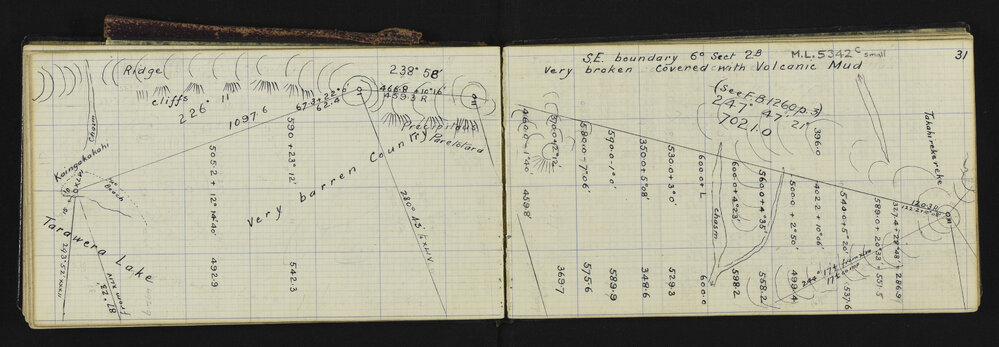 Ridge
Cliffs
238° 58'
226° 11'
1097.6
67.3 + 22° 6'
62.4
466.8 + 10° 16'
459.3 R
OM
Precipitous
Pareloard
chasm
Kaingakakahi
Beach
OXLVI
590 + 23° 12'
505.2 + 12° 14' 40"
Very barren Country
Tarawera Lake
293° 52' XXXII
492.9
542.3
280° 43' LXLIV
31
S.E. boundary 6° Sect 2B M.L. 5342C small
Very broken Covered with Volcanic Mud
(See F.B. 1260 p. 3)
247° 47' 21"
7021.0
Takahirekereke
460.0 - 1° 40'
500.0 + 2° 12'
580.0 - 7° 06'
590.0 - 1° 0'
350.0 + 5° 08'
530.0 + 3° 0'
600.0 + L
600.0 + 4° 23'
560.0 + 4° 35'
500.0 + 2° 50'
396.0
402.2 + 10° 06'
544.0 + 5° 20'
589.0 + 20° 33'
337.4 + 28° 48'
chasm
459.8'
369.7
575.6
589.9
348.6
529.3
600.0
598.2
558.2
499.4
537.6
551.5
286.9